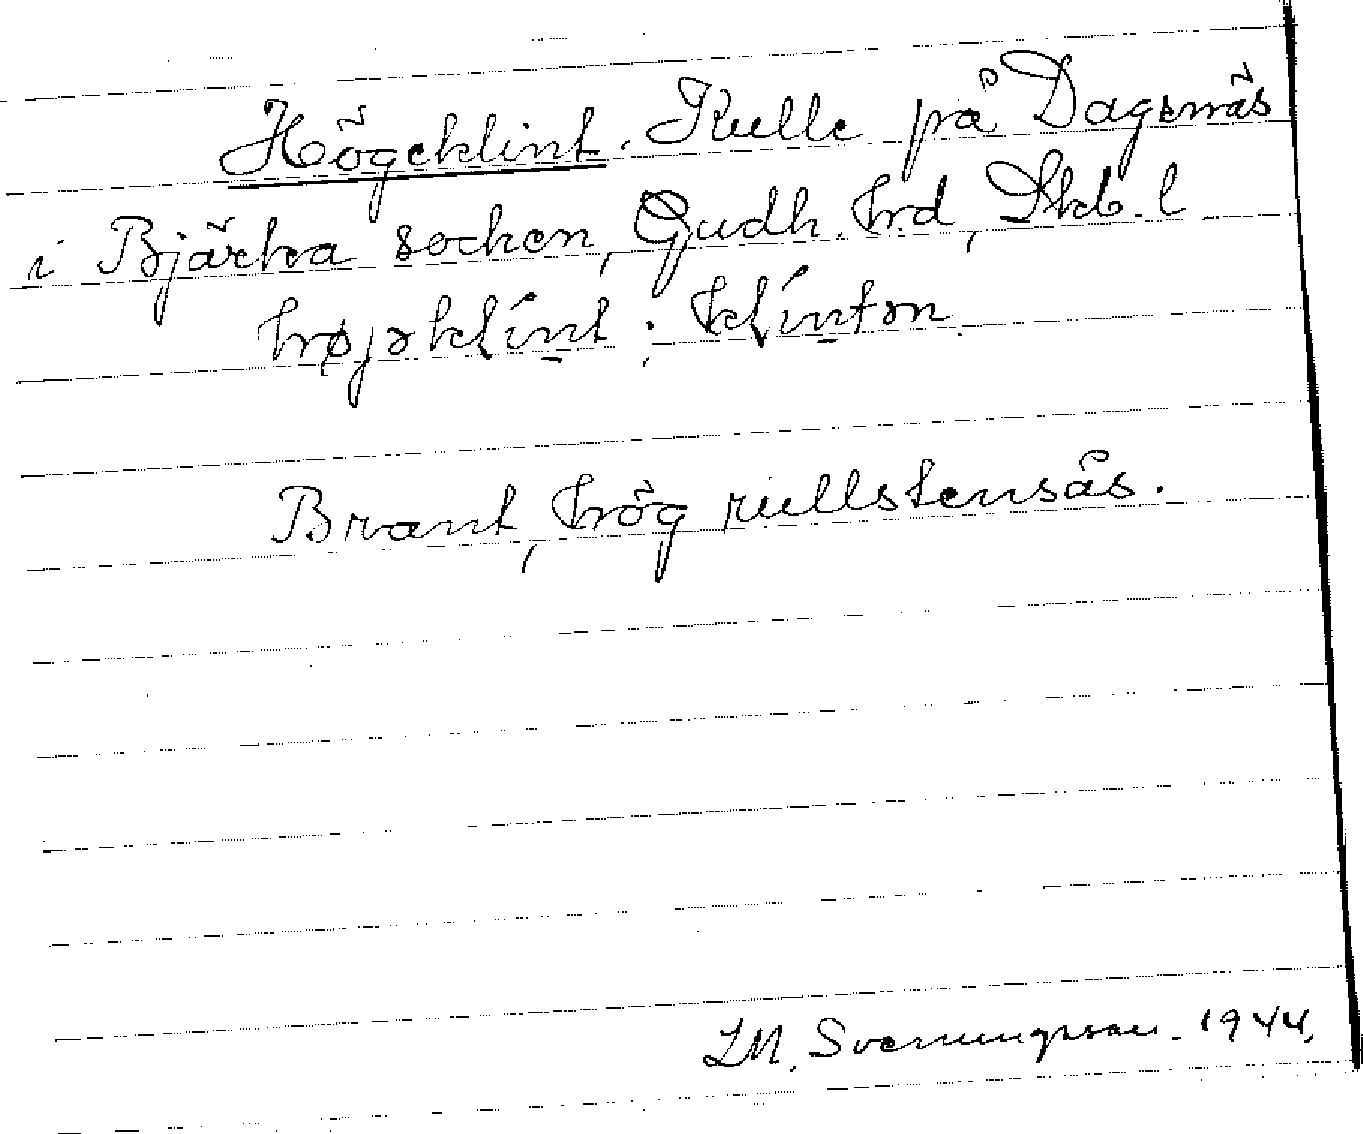 Högeklint. Kulle på Dagsnäs
i Bjärka socken, Gudh. hrd, Skb. l
højəklínt ; klíntən.
Brant, hög rullstensås.
LM. Svenungsson. 1944.